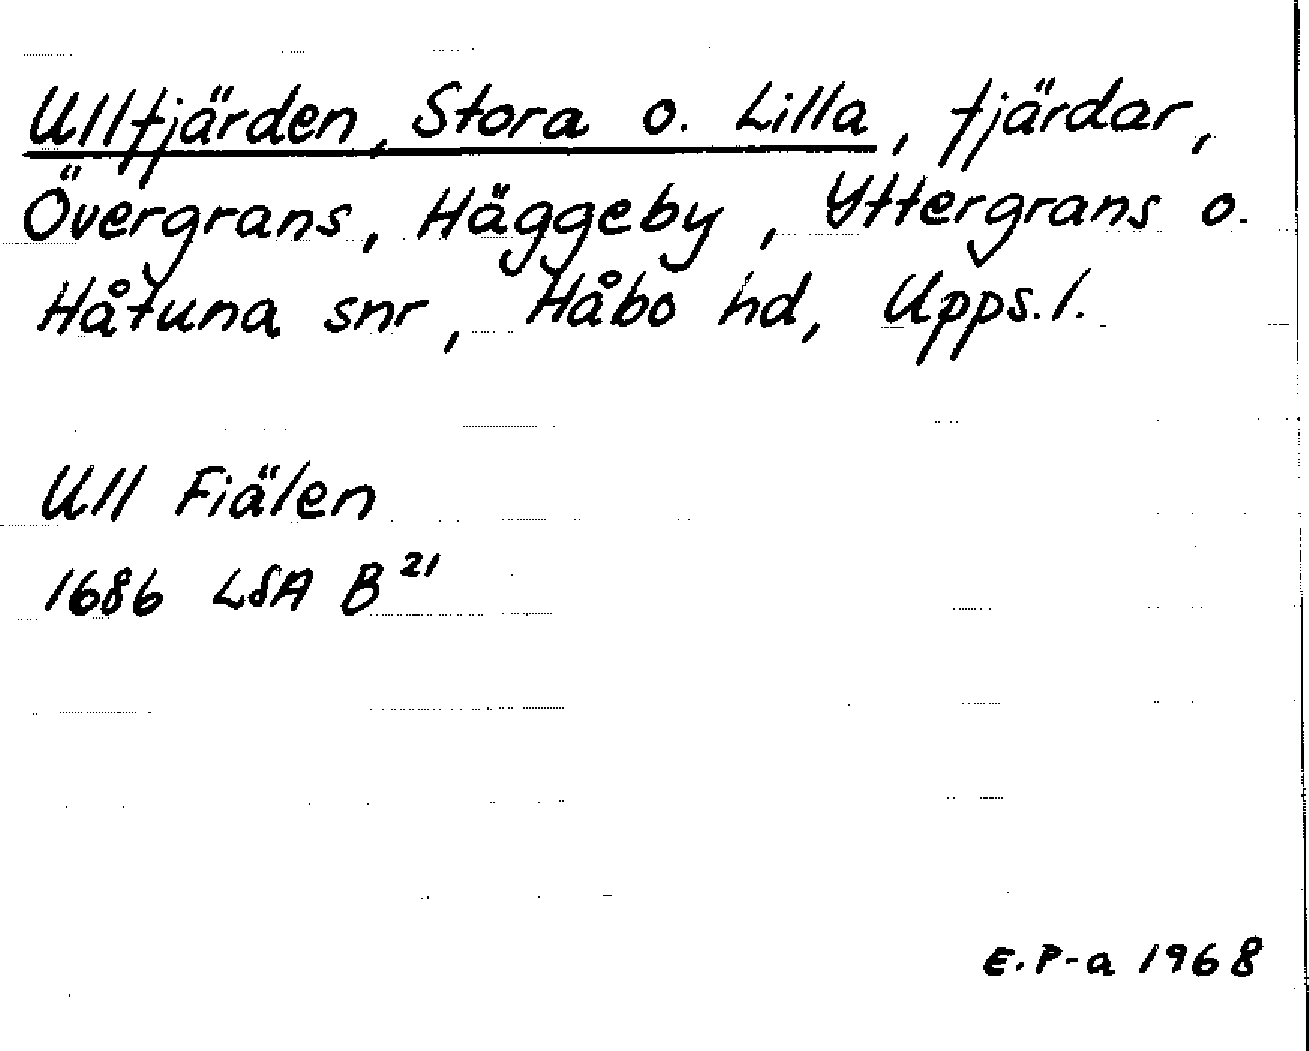 Ullfjärden, Stora o. Lilla, fjärdar,
Övergrans, Häggeby, Yttergrans o.
Håtuna snr, Håbo hd, Upps.l.
Ull Fiälen
1686 LSA B²¹
E.P-a 1968